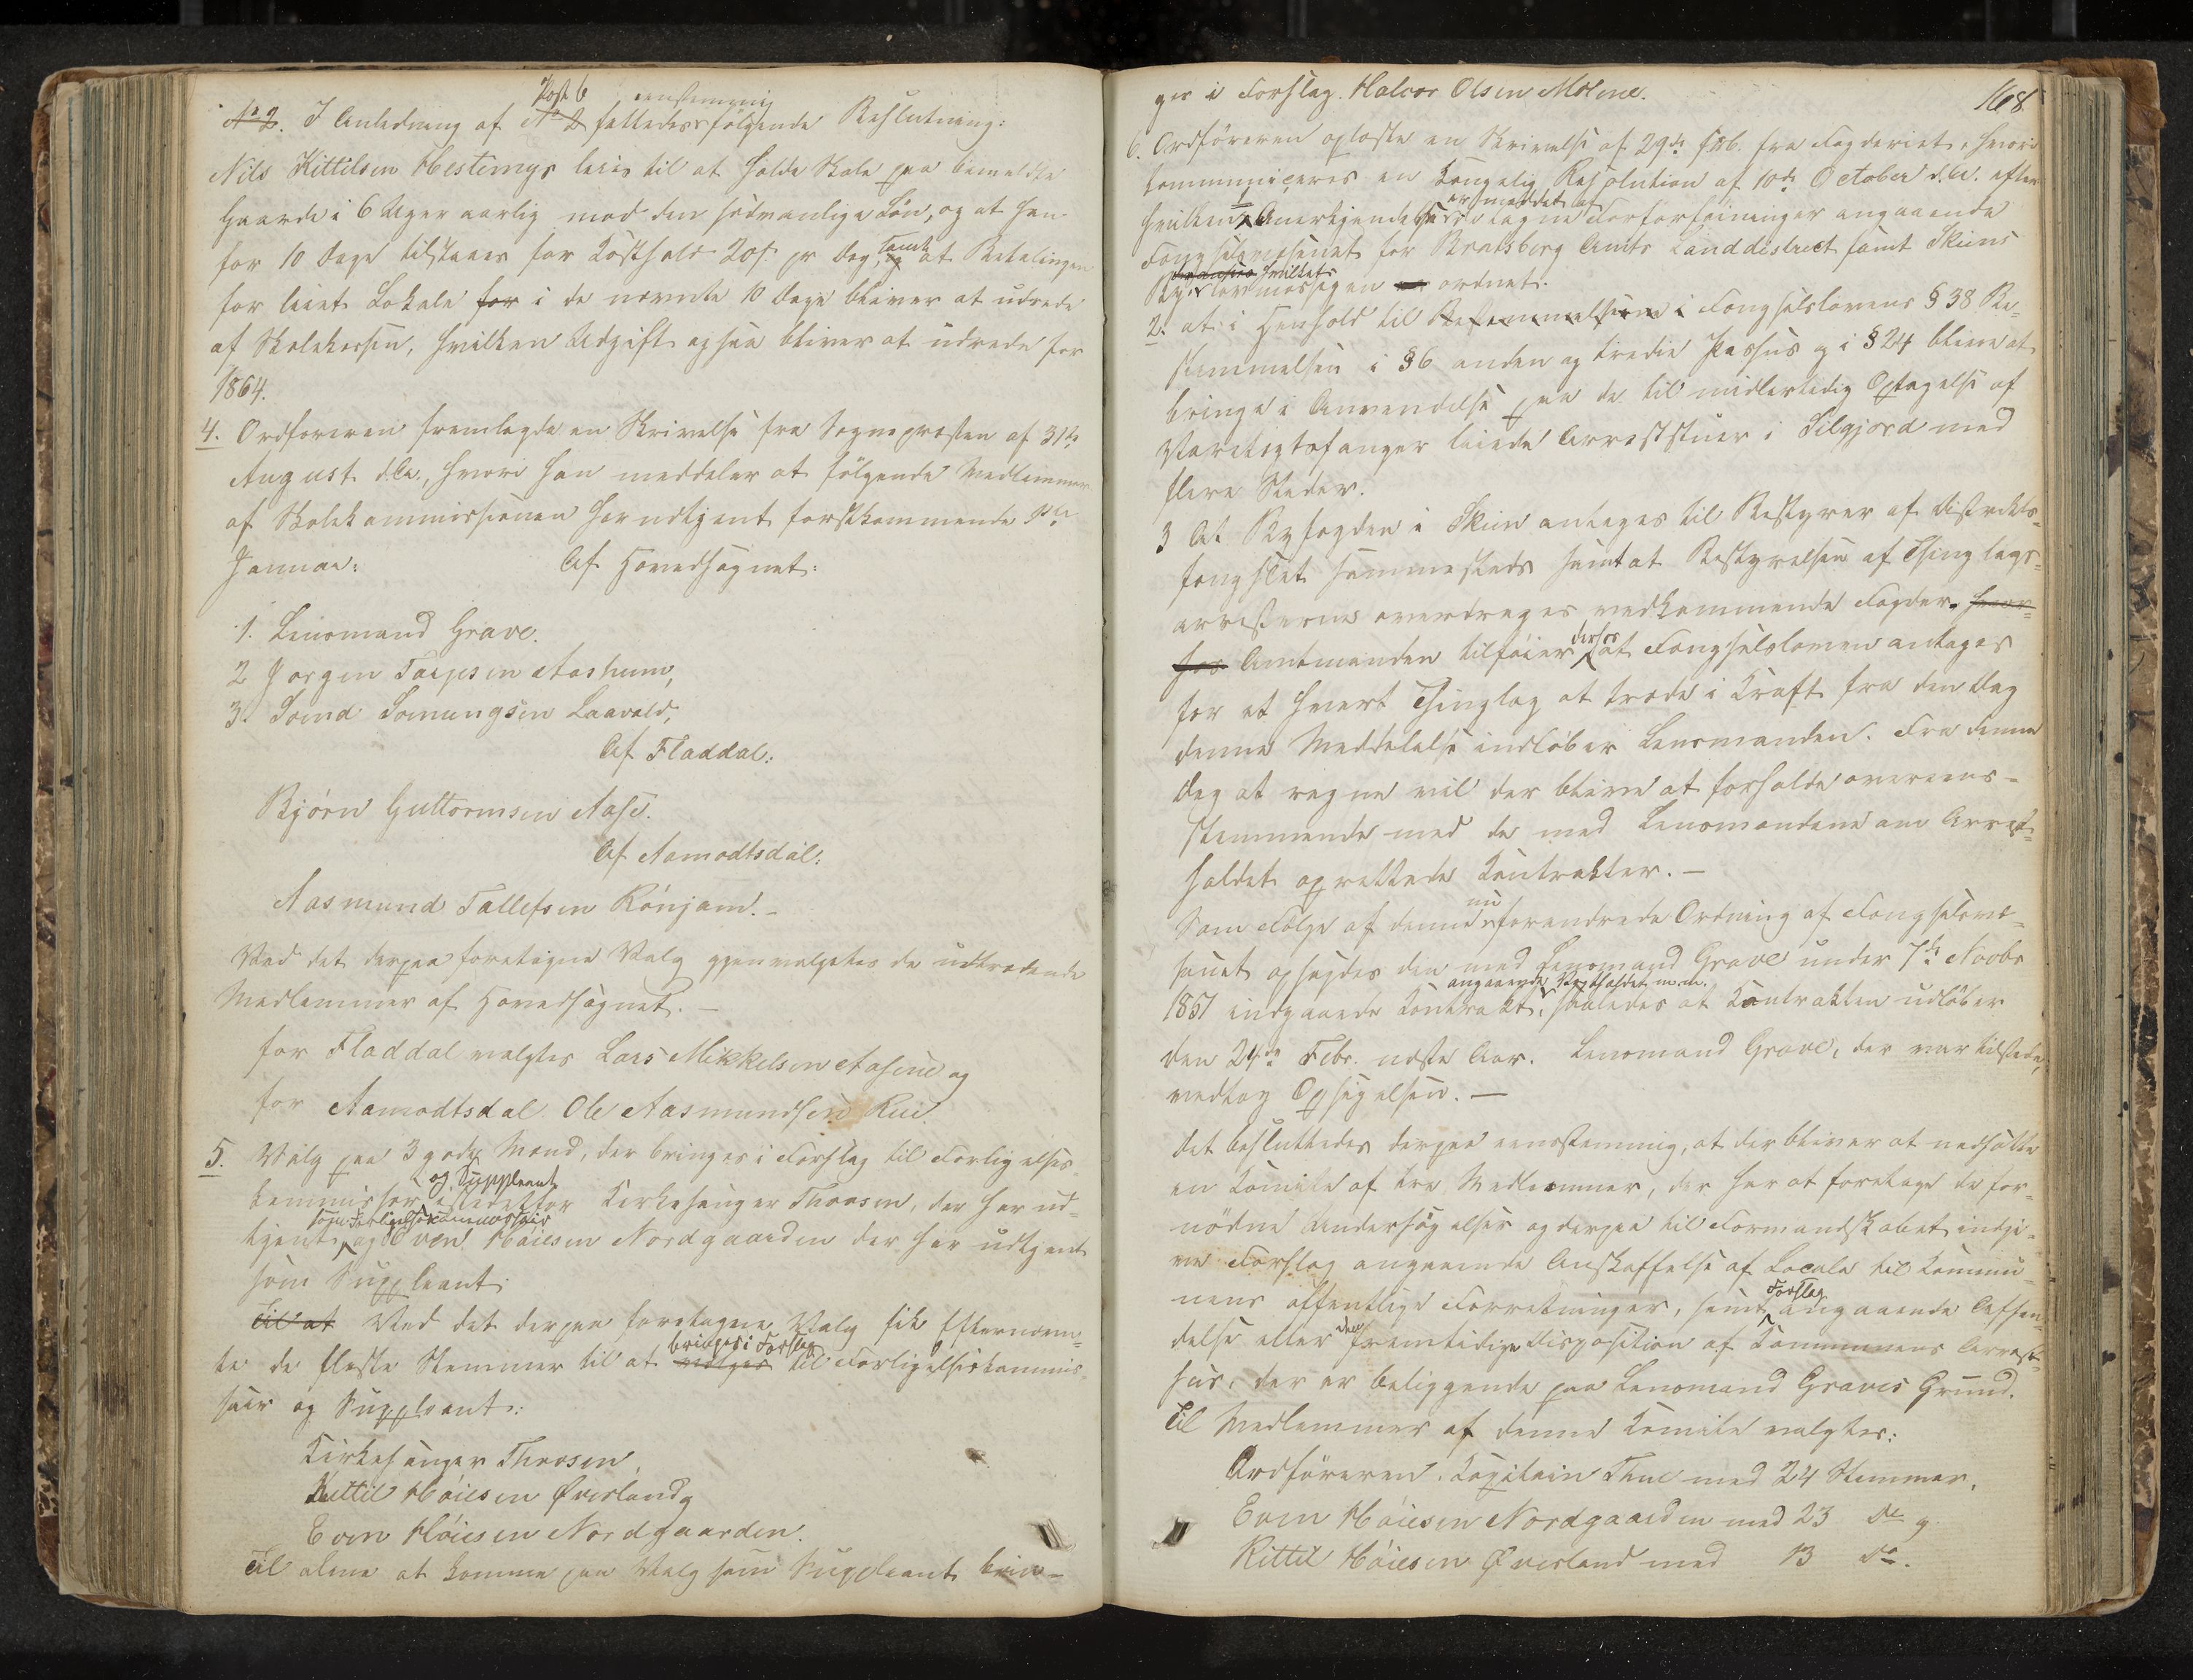 No 2. I Anledning af No 2 Post 6 fattedes eenstemmig følgende Beslutning:
Nils Kittilsen Hestemyr leies til at holde Skole paa bemeldte
Gaarde i 6 Uger aarlig mod den sædvanlige Løn, og at han
for 10 Dage tilstaaes for Kosthold 20 s pr Dag, samt og at Betalingen
for leiet Lokale for i de nævnte 10 Dage bliver at udrede
af Skolekassen, hvilken Udgift ogsaa bliver at udrede for
1864.
4. Ordføreren fremlagde en Skrivelse fra Sognepræsten af 31te
August d.A., hvori han meddeler at følgende Medlemmer
af Skolekommissionen har udtjent førstkommende 1ste
Januar: Af Hovedsognet:
1. Lensmand Grave.
2 Jørgen Tarjesen Aashum,
3. Sveind Somungsen Laavald,
Af Fladdal:
Bjørn Guttormsen Aase.
Af Aamodtsdal:
Aasmund Tallefsen Rönjom. -
Ved det derpaa foretagne Valg gjenvalgtes de udtrædende
Medlemmer af Hovedsognet. -
for Fladdal valgtes Lars Mikkelsen Aasene og
for Aamodtsdal Ole Aasmundsen Rui.
5. Valg paa 3 gode Mænd, der bringes i Forslag til Forligelses-
kommissær og Suppleant istedetfor Kirkesanger Thorsen, der har ud-
tjent som Forligelseskommissair, og Even Høiesen Nordgaarden der har udtjent
som Suppleant.
Til at Ved det derpaa foretagne Valg fik Efternævn-
te de fleste Stemmer til at vælges bringes i Forslag til Forligelseskommis-
sair og Suppleant:
Kirkesanger Thorsen,
Kittil Høiesen Øverland og
Even Høiesen Nordgaarden.
Til alene at komme paa Valg som Suppleant brin-
ges i Forslag. Halvor Olsen Moline.
168
6. Ordføreren oplæste en Skrivelse af 29de f.M. fra Fogderiet, hvori
kommuniceres en Kongelig Resolution af 10de October d.A. efter
hvilken Anerkjendelse er meddelt af de tagne Forføininger angaaende
Fængselsvæsenet for Bratsberg Amts Landdistrict samt Skiens
By, hvilket lovmæssigen er ordnet.
2. at i Henhold til Bestemmelsen i Fængselslovens § 38 Be-
stemmelsen i § 6 anden og tredie Passus og i § 24 blive at
bringe i Anvendelse paa de til midlertidig Optagelse af
Varetægtsfanger leiede Arreststuer i Silgjord med
flere Steder.
3 At Byfogden i Skien antages til Bestyrer af Distrikts-
fængslet sammesteds samt at Bestyrelsen af Thinglags-
arresterne overdrages vedkommende Fogder. hvor-
hos Amtmanden tilføier derhos at Fængselsloven antages
for et hvert Thinglag at træde i Kraft fra den Dag
denne Meddelelse indløber Lensmanden. Fra denne
Dag at regne vil der blive at forholde overeens-
stemmende med de med Lensmændene om Arrest-
holdet oprettede Kontrakter. -
Som Følge af denne nu forandrede Ordning af Fængselsvæ-
senet opsagdes den med Lensmand Grave under 7de Novbr
1851 indgaaede Kontrakt, angaaende Arrestholdet m.m. saaledes at Kontrakten udløber
den 24de Febr. næste Aar. Lensmand Grave, der var tilstede,
vedtog Opsigelsen. -
Det besluttedes derpaa eenstemmig, at der bliver at nedsætte
en Komite af tre Medlemmer, der har at foretage de for-
nødne Undersøgelser og derpaa til Formandskabet indgi-
ve Forslag angaaende Anskaffelse af Locale til Kommu-
nens offentlige Forretninger, samt Forslag angaaende Afhæn-
delse eller den fremtidige Disposition af Kommunens Arrest-
huus, der er beliggende paa Lensmand Graves Grund.
Til Medlemmer af denne Komite valgtes:
Ordføreren, Kapitain Thue med 24 Stemmer.
Even Høiesen Nordgaarden med 23 Do og
Kittil Høiesen Øverland med 13 Do.